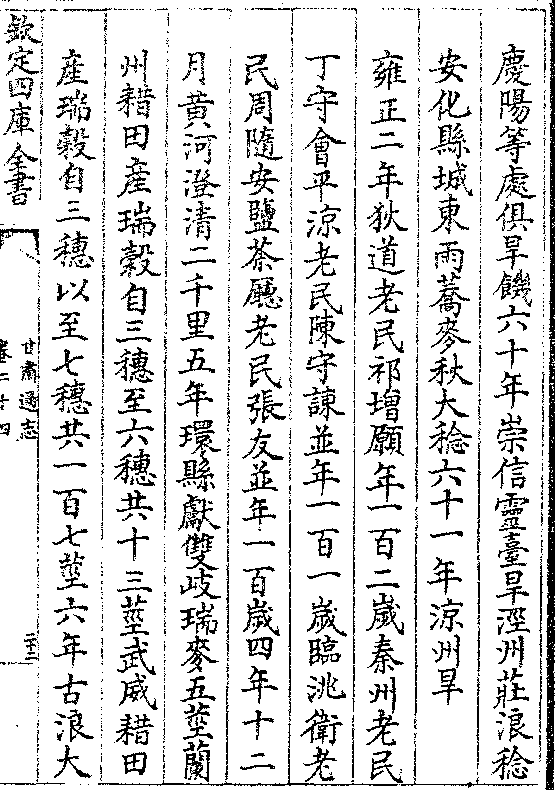 慶陽等處俱旱饑六十年崇信靈臺旱涇州莊浪稔
安化縣城東雨蕎麥秋大稔六十一年涼州旱
雍正二年狄道老民祁增願年一百二歲秦州老民
丁守會平涼老民陳守諫並年一百一歲臨洮衛老
民周隨安鹽茶廳老民張友並年一百歲四年十二
月黃河澄清二千里五年環縣獻雙岐瑞麥五莖蘭
州耤田產瑞穀自三穗至六穗共十三莖武威耤田
產瑞穀自三穗以至七穗共一百七莖六年古浪大
欽定四庫全書
甘肅通志
卷二十四
三十二